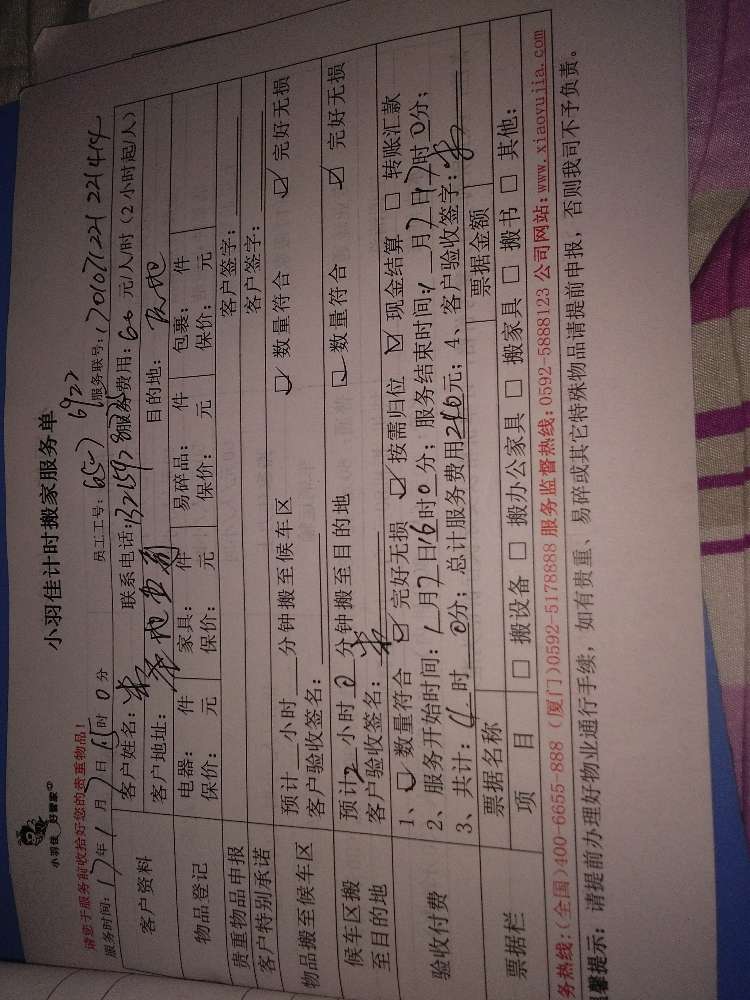 小羽佳 好管家
小羽佳计时搬家服务单
请您于服务前收拾好您的贵重物品！
服务时间：17年1月7日15时0分 员工工号：6527 6922 服务联号：170107122122 1414
客户资料 客户姓名： 联系电话： 服务费用：60元/人/时（2小时起/人）
客户地址： 目的地：
物品登记 电器： 件 家具： 件 易碎品： 件 包裹： 件
保价： 元 保价： 元 保价： 元 保价： 元
贵重物品申报 客户签字：
客户特别承诺 客户签字：
物品搬至候车区 预计 小时 分钟搬至候车区 数量符合 完好无损
客户验收签名：
候车区搬至目的地 预计2小时0分钟搬至目的地 数量符合 完好无损
客户验收签名：
验收付费 1、 数量符合 完好无损 按需归位 现金结算 转账汇款
2、服务开始时间：1月7日16时0分；服务结束时间：1月7日17时0分；
3、共计： 时0分；总计服务费用240元；4、客户验收签字：
票据栏 票据名称 票据金额
项 目 搬设备 搬办公家具 搬家具 搬书 其他：
务热线：（全国）400-6655-888（厦门）0592-5178888 服务监督热线：0592-5888123 公司网站：www.xiaoyujia.com
馨提示：请提前办理好物业通行手续，如有贵重、易碎或其它特殊物品请提前申报，否则我司不予负责。